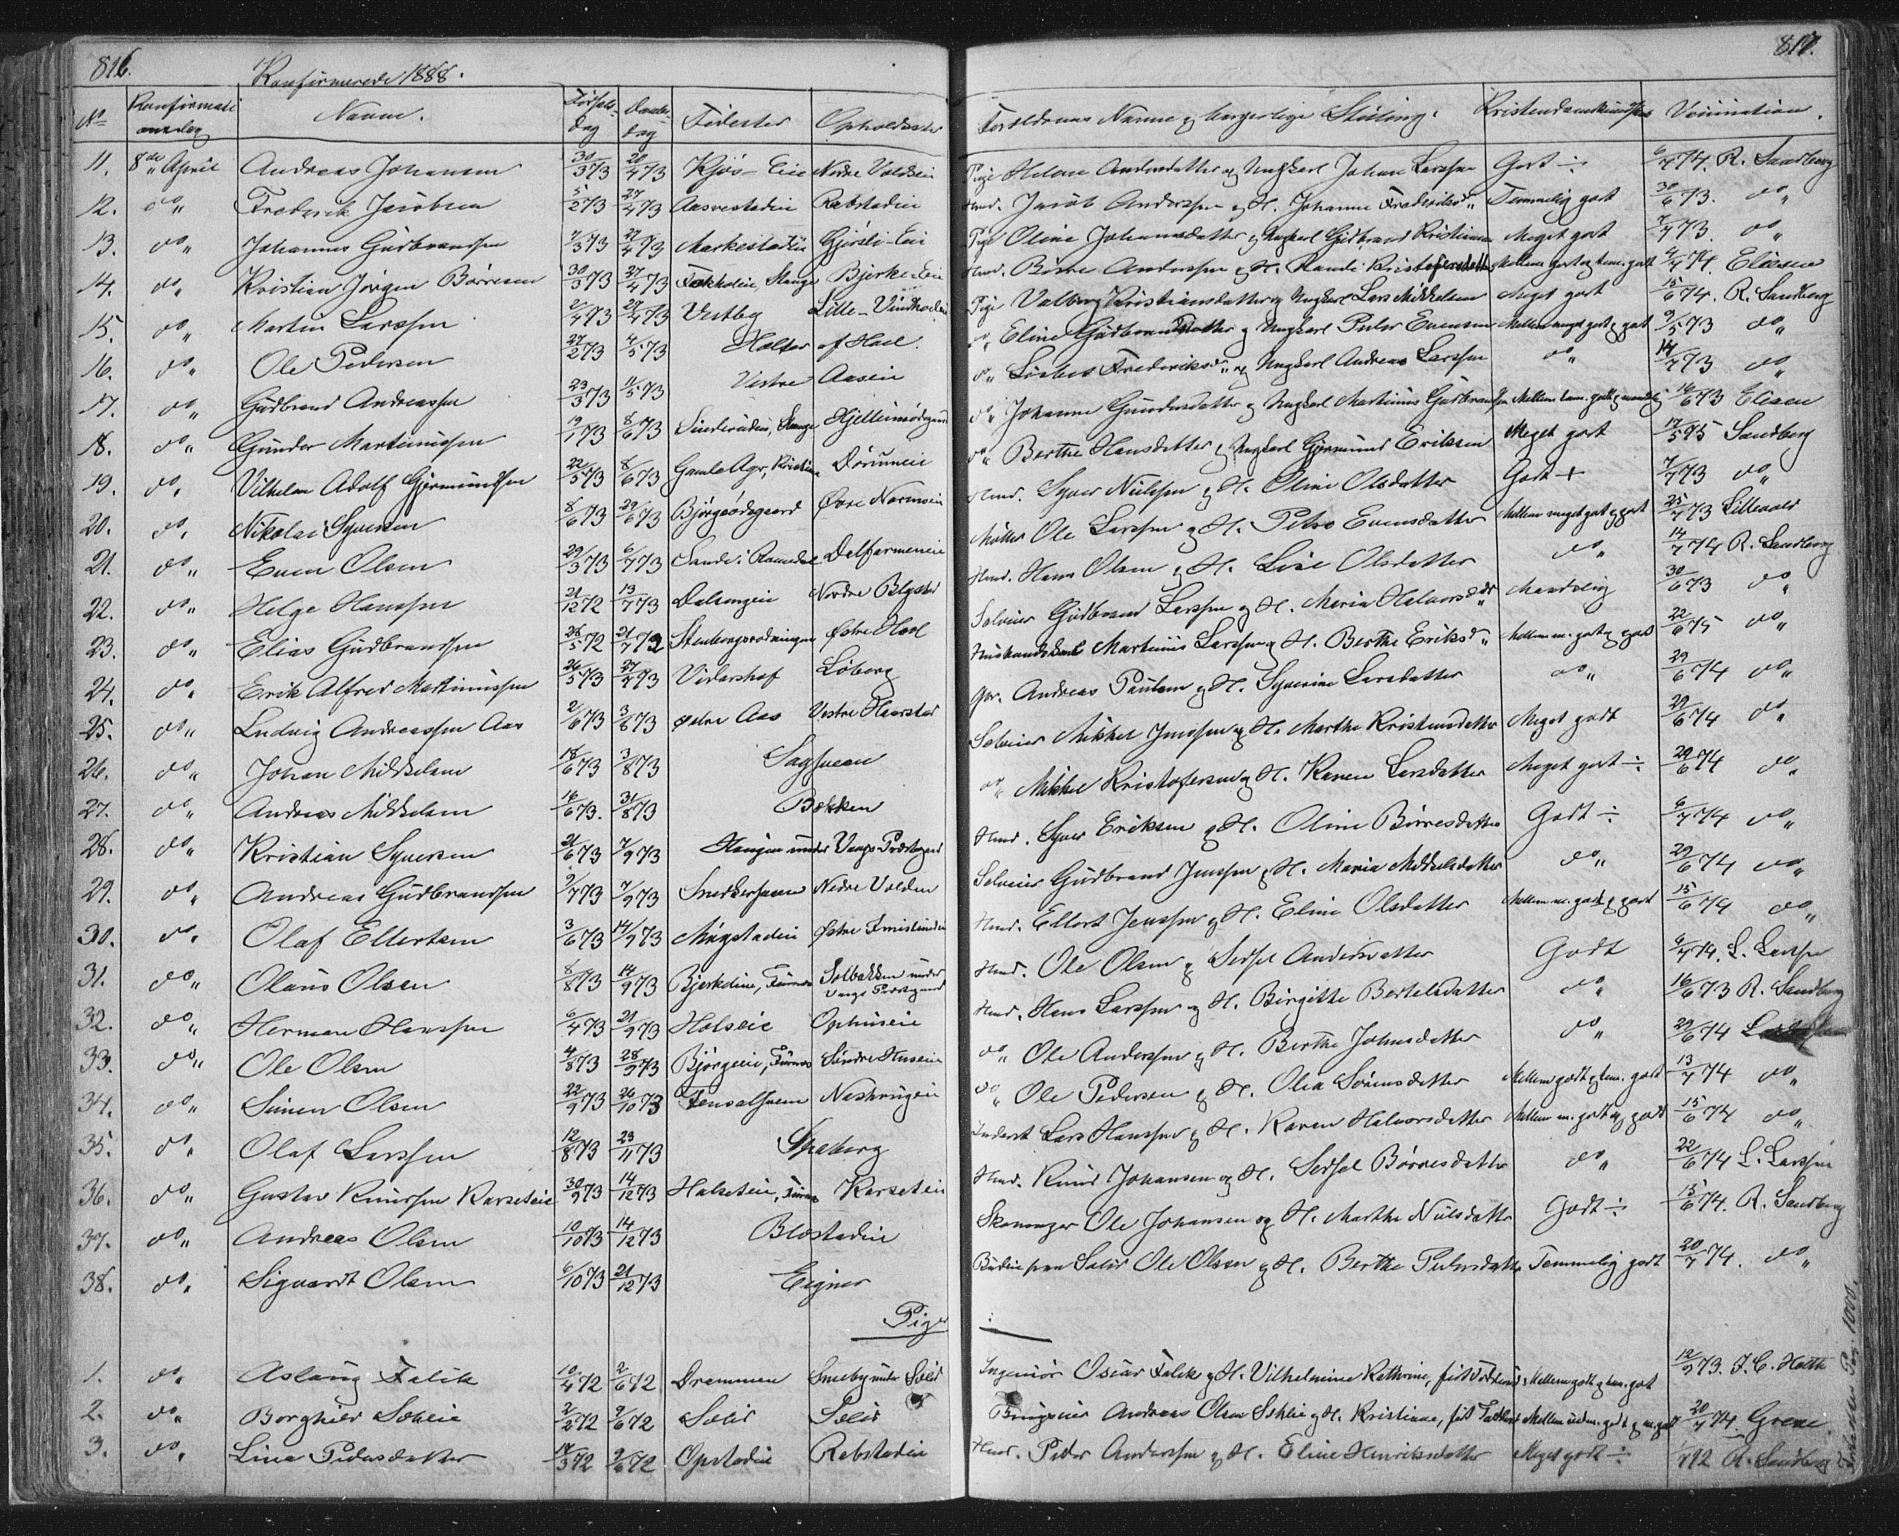 816.
Konfirmerede 1888.
No Konfirmationsdag Navne. Fødselsdag Daabsdag Fødested Opholdssted
11. 8de April Andreas Johansen 30/3 73 20/4 73 Kjøs-Eie Nedre Voldeie
12. do Frederik Jacobsen 5/2 73 27/4 73 Aasvestadeie Rabstadeie
13. do Johannes Gudbrandsen 7/3 73 27/4 73 Markestadeie Gjørsli-Eie
14. do Kristian Jørgen Børresen 30/3 73 27/4 73 Stange Bjerke-Eie
15. do Martin Larssen 2/4 73 27/4 73 Vestby Lille-
16. do Ole Pedersen 27/2 73 4/5 73 Holter af Hosl.
17. do Gudbrand Andreassen 23/3 73 11/5 73 Vestre Aaseie
18. do Gunder Martinussen 12/1 73 8/6 73 Stange
19. do Vilhelm Adolf Gjermundsen 22/5 73 8/6 73 Gamle Agr, Kristiania
20. do Nikolai Syversen 8/6 73 29/6 73 Bjørgeødegaard Øvre
21. do Even Olsen 29/3 73 6/7 73 Sande i Romedal
22. do Helge Hanssen 21/12 72 13/7 73 Dalsengeie Nordre
23. do Elias Gudbrandsen 26/5 72 21/7 72 Østre Hosl
24. do Erik Alfred Martinussen 26/5 73 27/7 73 Vidarshof Løberg
25. do Ludvig Andreassen Aas 2/6 73 3/8 73 Østre Aas Vestre Haarstad
26. do Johan Mikkelsen 18/6 73 3/8 73 Sagstuen
27. do Andreas Mikkelsen 16/6 73. 31/8 73 Bækken
28. do Kristian Syversen 21/6 73 7/9 73 Haugen under Vangs Præstegaard
29. do Andreas Gudbrandsen 9/7 73 7/9 73 Snekkerstuen Nedre Volden
30. do Olaf Ellertsen 3/6 73 14/9 73 Østre
31. do Olaus Olsen 8/8 73 14/9 73 Bjerkeleie, Furnes Solbakken under
Vangs Præstegaard
32. do Herman Hanssen 6/4 73 21/9 73 Holseie Ophuseie
33. do Ole Olsen 4/8 73 28/9 73 Bjørgeeie, Furnes Søndre Huseie
34. do Simen Olsen 22/9 73 26/10 73
35. do Olaf Larssen 12/8 73 23/11 73 Spaberg
36. do Gustav Knudssen Karseteie 30/9 73 14/12 73 Halseteie, Furnes Karseteie
37. do Andreas Olsen 10/10 73 14/12 73 Blæstadeie
38. do Siguardt Olsen 6/10 73 21/12 73 Eigner
Piger
1. do Aslaug Falck 10/4 72 2/6 72 Drammen Smeby under Sælid
2. do Borghild Sæhlie 2/2 72 9/6 72 Sælid Sælid
3. do Lina Pedersdatter 17/3 72 9/6 72 Opstadeie Rabstadeie
817.
Forældrenes Navne og borgerlige Stilling. Kristendomskundskab Vaccination.
Pige Helene Andersdatter og Ungkarl Johan Larssen Godt ÷ 6/7 74. R. Sandberg
Hmd. Jacob Anderssen og H. Johanne Frederiksd. Temmelig godt 30/6 73. do
Pige Oline Johannesdatter og Ungkarl Gudbrand Kristiansen Meget godt 7/7 73. do
Hmd. Børre Anderssen og H. Randi Kristofersdatter Mellem godt og tem. godt 6/7 74. Eliesen
Pige Valborg Kristiansdatter og Ungkarl Lars Mikkelsen Meget godt 15/6 74. R. Sandberg
do Eline Gudbrandsdatter og Ungkarl Peder Evensen Mellem meget godt og godt 9/5 73 do
do Lisbet Frederiksd. og Ungkarl Andreas Larssen do 14/7 73 do
do Johanne Gundersdatter og Ungkarl Martinus Gudbrandsen Mellem tem. godt og maadelig 16/6 73 Eliesen
do Berthe Hansdatter og Ungkarl Gjermund Eriksen Meget godt 17/5 75 Sandberg
Hmd. Syver Nielssen og H. Oline Olsdatter Godt + 7/7 73 do
Møller Ole Larssen og H. Petra Evensdatter Mellem meget godt og godt 25/7 73 Lillevold
Hmd. Hans Olsen og H. Lise Olsdatter do 14/7 74 R. Sandberg
Selveier Gudbrand Larssen og H. Maria Halvorsdtr Maadelig 30/6 73 do
Husmandskarl Martinus Larssen og H. Berthe Eriksd. Mellem m. godt og godt 22/6 75 do
Gbr. Andreas Paulsen og H. Syverine Larsdatter do 29/6 74 do
Selveier Mikkel Jenssen og H. Marthe Kristensdatter Meget godt 29/6 74 do
do Mikkel Kristofersen og H. Karen Larsdatter Meget godt ÷ 29/6 74 do
Hmd. Syver Eriksen og H. Oline Børresdatter Godt ÷ 6/7 74 do
Selveier Gudbrand Jenssen og H. Maria Mikkelsdatter do 29/6 74 do
Hmd. Ellert Jenssen og H. Eline Olsdatter Mellem m. godt og godt 15/6 74 do
Hmd. Ole Olsen og Sedsel Andersdatter Godt 6/7 74. L. Larssen
Hmd. Hans Larssen og H. Birgitte Bertelsdatter do 16/6 73 R. Sandberg
do Ole Anderssen og H. Berthe Johnsdatter do 29/6 74
do Ole Pedersen og H. Olea Simensdatter Mellem godt og tem. godt 13/7 74 do
Inderst Lars Hanssen og H. Karen Halvorsdatter Mellem m. godt og godt 15/6 74 do
Hmd. Knud Johansen og H. Sedsel Børresdatter do 22/6 74 L. Larssen
Skomager Ole Johansen og H. Marthe Nielsdatter Godt ÷ 15/6 74. R. Sandberg
Ole Olsen og H. Berthe Pedersdatter Temmelig godt 20/7 74. do
÷
Ingeniør Oscar Falck og H. Vilhelmine Kathrine, født Mellem godt og tem. godt 12/9 73. J. C. Holth
Brugseier Andreas Olsen Sæhlie og H. Kristiane, født Mellem udm. godt og m. godt 20/7 74. Greve
Hmd. Peder Anderssen og H. Eline Henriksdatter Meget godt ÷ R. Sandberg
Pag. 1000.